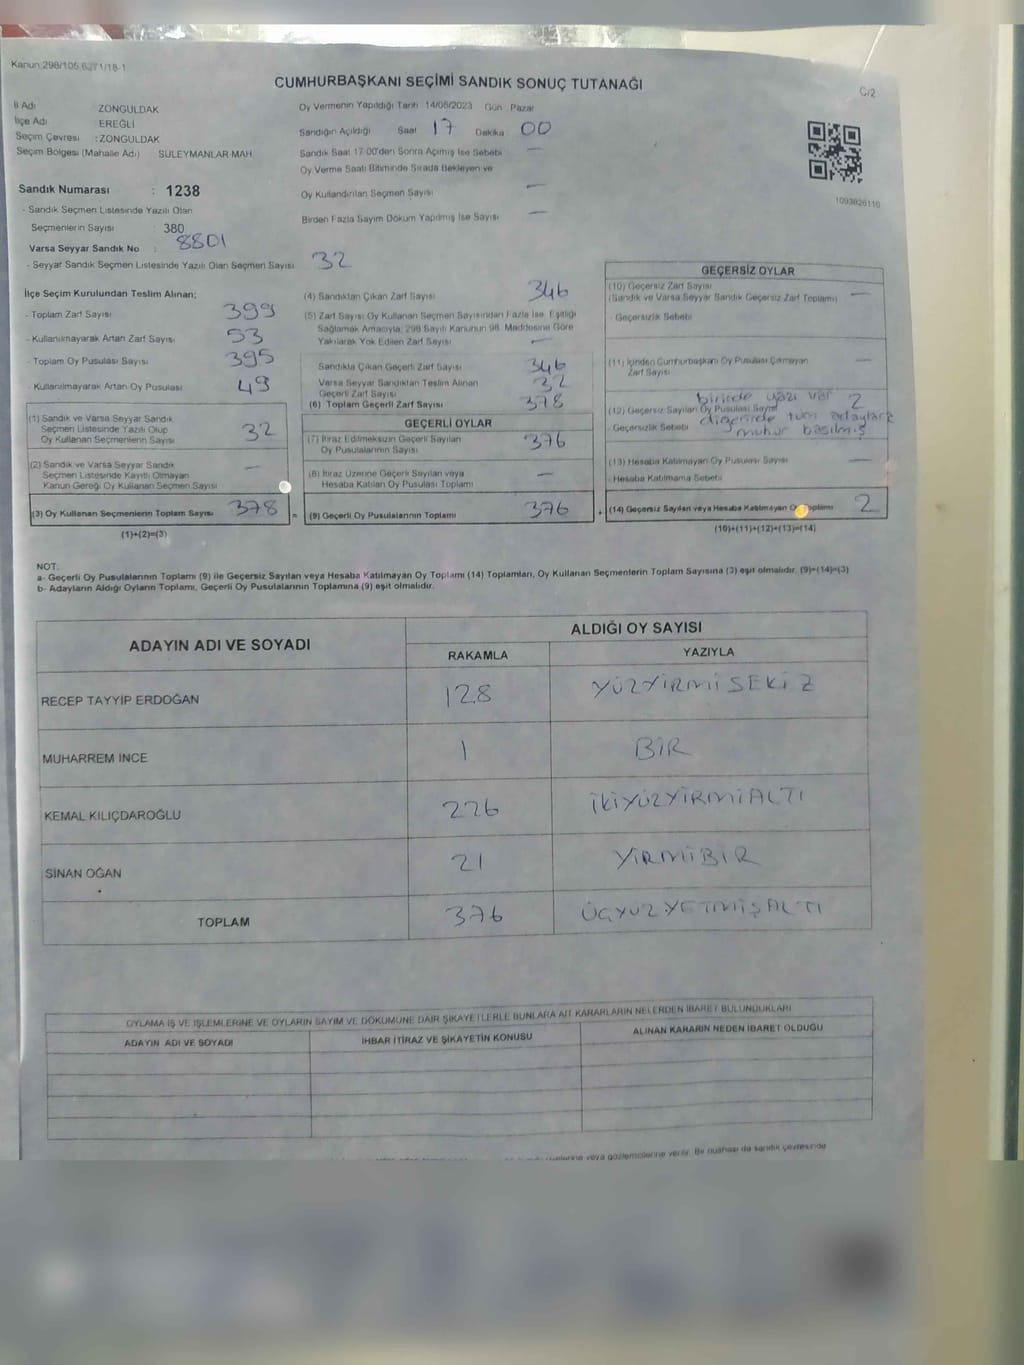 Kanun:298/105,6271/18-1
CUMHURBAŞKANI SEÇİMİ SANDIK SONUÇ TUTANAĞI
C/2
İl Adı ZONGULDAK
İlçe Adı EREĞLİ
Seçim Çevresi :ZONGULDAK
Seçim Bölgesi (Mahalle Adı) SÜLEYMANLAR MAH.
Sandık Numarası : 1238
- Sandık Seçmen Listesinde Yazılı Olan
Seçmenlerin Sayısı : 380
Varsa Seyyar Sandık No : 8801
- Seyyar Sandık Seçmen Listesinde Yazılı Olan Seçmen Sayısı 32
Oy Vermenin Yapıldığı Tarih 14/05/2023 Gün Pazar
Sandığın Açıldığı Saat 17 Dakika 00
Sandık Saat 17:00'den Sonra Açılmış İse Sebebi —
Oy Verme Saati Bitiminde Sırada Bekleyen ve
Oy Kullandırılan Seçmen Sayısı —
Birden Fazla Sayım Döküm Yapılmış İse Sayısı —
1093826110
İlçe Seçim Kurulundan Teslim Alınan;
- Toplam Zarf Sayısı 399
- Kullanılmayarak Artan Zarf Sayısı 53
- Toplam Oy Pusulası Sayısı 395
- Kullanılmayarak Artan Oy Pusulası 49
(1) Sandık ve Varsa Seyyar Sandık
Seçmen Listesinde Yazılı Olup
Oy Kullanan Seçmenlerin Sayısı 32
(2) Sandık ve Varsa Seyyar Sandık
Seçmen Listesinde Kayıtlı Olmayan
Kanun Gereği Oy Kullanan Seçmen Sayısı —
(3) Oy Kullanan Seçmenlerin Toplam Sayısı 378
(1)+(2)=(3)
(4) Sandıktan Çıkan Zarf Sayısı 346
(5) Zarf Sayısı Oy Kullanan Seçmen Sayısından Fazla İse, Eşitliği
Sağlamak Amacıyla, 298 Sayılı Kanunun 98. Maddesine Göre
Yakılarak Yok Edilen Zarf Sayısı —
Sandıkta Çıkan Geçerli Zarf Sayısı 346
Varsa Seyyar Sandıktan Teslim Alınan
Geçerli Zarf Sayısı 32
(6) Toplam Geçerli Zarf Sayısı 378
GEÇERLİ OYLAR
(7) İtiraz Edilmeksizin Geçerli Sayılan
Oy Pusulalarının Sayısı 376
(8) İtiraz Üzerine Geçerli Sayılan veya
Hesaba Katılan Oy Pusulası Toplamı —
= (9) Geçerli Oy Pusulalarının Toplamı 376
GEÇERSİZ OYLAR
(10) Geçersiz Zarf Sayısı
(Sandık ve Varsa Seyyar Sandık Geçersiz Zarf Toplamı) —
- Geçersizlik Sebebi
(11) İçinden Cumhurbaşkanı Oy Pusulası Çıkmayan —
Zarf Sayısı
birinde yazı var 2
(12) Geçersiz Sayılan Oy Pusulası Sayısı
diğerinde tüm adaylara
- Geçersizlik Sebebi
mühür basılmış
(13) Hesaba Katılmayan Oy Pusulası Sayısı —
- Hesaba Katılmama Sebebi
+ (14) Geçersiz Sayılan veya Hesaba Katılmayan Oy Toplamı 2
(10)+(11)+(12)+(13)=(14)
NOT:
a- Geçerli Oy Pusulalarının Toplamı (9) ile Geçersiz Sayılan veya Hesaba Katılmayan Oy Toplamı (14) Toplamları, Oy Kullanan Seçmenlerin Toplam Sayısına (3) eşit olmalıdır. (9)+(14)=(3)
b- Adayların Aldığı Oyların Toplamı, Geçerli Oy Pusulalarının Toplamına (9) eşit olmalıdır.
ADAYIN ADI VE SOYADI
ALDIĞI OY SAYISI
RAKAMLA YAZIYLA
RECEP TAYYİP ERDOĞAN 128 YÜZYİRMİSEKİZ
MUHARREM İNCE 1 BİR
KEMAL KILIÇDAROĞLU 226 İKİYÜZYİRMİALTI
SİNAN OĞAN 21 YİRMİBİR
TOPLAM 376 ÜÇYÜZYETMİŞALTI
OYLAMA İŞ VE İŞLEMLERİNE VE OYLARIN SAYIM VE DÖKÜMÜNE DAİR ŞİKAYETLERLE BUNLARA AİT KARARLARIN NELERDEN İBARET BULUNDUKLARI
ADAYIN ADI VE SOYADI İHBAR İTİRAZ VE ŞİKAYETİN KONUSU ALINAN KARARIN NEDEN İBARET OLDUĞU
veya gözlemcilerine verilir. Bir nüshası da sandık çevresinde